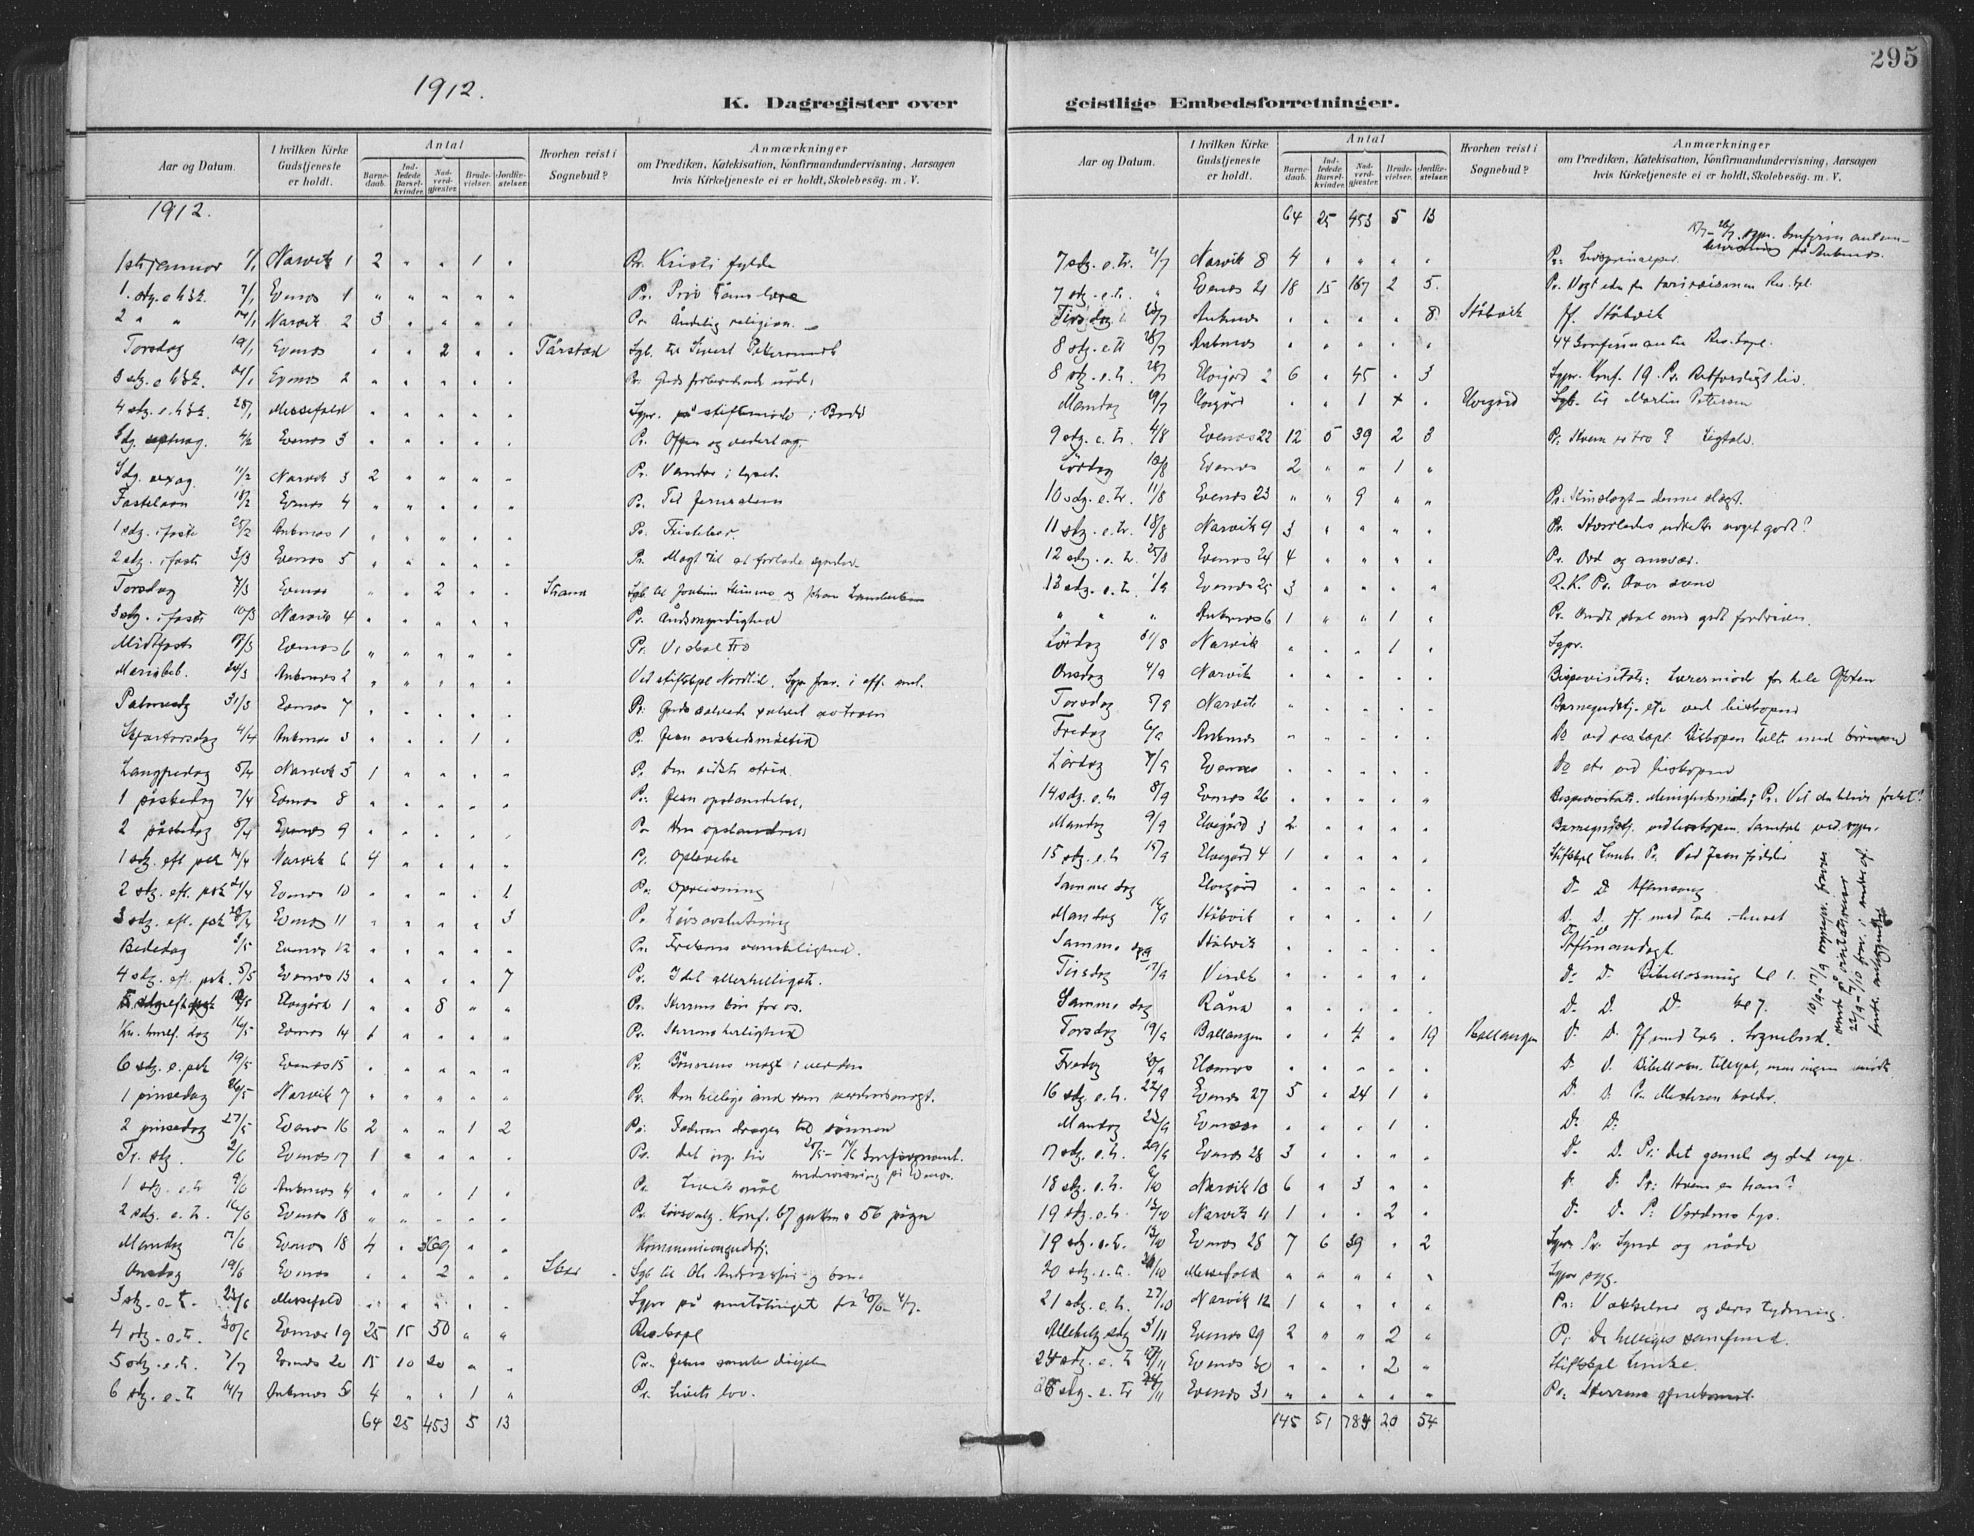 1912.
K. Dagregister over
Aar og Datum.
I hvilken Kirke Gudstjeneste er holdt.
Antal
Barnedaab.
Indledede Barselkvinder.
Nadverdgjester.
Brudevielser.
Jordfæstelser.
Hvorhen reist i Sognebud?
Anmærkninger
om Prædiken, Katekisation, Konfirmandundervisning, Aarsagen
hvis Kirketjeneste ei er holdt, Skolebesøg. m. V.
1912.
1ste januar 1/1 Narvik 1 2 " " 1 " Pr. Kristi fylde
1. sdg. e. h3k. 7/1 Evenes 1 " " " " " Pr.
2 " " 14/1 Narvik 2 3 " " " " Pr. Åndelig religion.
Torsdag 19/1 Evenes " " 2 " " Tårstad Sgb. til Sivert
3 sdg. e. h3k. 21/1 Evenes 2 " " " " " Pr. Guds
4 sdg. e. h3k. 28/1 Messefald " " " " " Sgpr. på stiftsmøde i Bodø
Sdg. septuag. 4/2 Evenes 3 " " " " " Pr. Offer og vederlag.
Sdg. sexag. 11/2 Narvik 3 2 " " " " Pr. Vandre i lyset.
Fastelavn 18/2 Evenes 4 " " " " " Pr. Til Jerusalem
1 sdg. i faste 25/2 Ankenes 1 " " " " " Pr. Fristelser.
2 sdg. i faste 3/3 Evenes 5 " " " " " Pr. Magt til at forlade synder
Torsdag 7/3 Evenes " " 2 " " Strand Sgb. til
3 sdg. i faste 10/3 Narvik 4 " " " " " Pr. Åndsmyndighed
Midtfaste 17/3 Evenes 6 " " " " " Pr. Vi skal tro
Mariæbeb. 24/3 Ankenes 2 " " " " " Ved stiftskpl Nordlid. Sgpr frav. i off.
Palmesdg 31/3 Evenes 7 " " " " " Pr.
Skjærtorsdag 4/4 Ankenes 3 " " " 1 " Pr. Jesu avskedsmåltid
Langfredag 5/4 Narvik 5 1 " " " " Pr. Den sidste strid.
1 påskedag 7/4 Evenes 8 " " " " " Pr. Jesu opstandelse.
2 påskedag 8/4 Evenes 9 " " " " " Pr. Den opstandne
1 sdg. eft. psk 14/4 Narvik 6 4 " " " " Pr. Oplevelse
2 sdg. eft. psk 21/4 Evenes 10 " " " " 1 Pr. Opreisning
3 sdg. eft. psk 28/4 Evenes 11 " " " " 3 Pr. Livsavslutning
Bededag 3/5 Evenes 12 " " " " " Pr. Frelsens vanskelighed.
4 sdg. eft. psk. 5/5 Evenes 13 " " " " 7 Pr. I det allerhelligste.
Elvegård 1 " " 8 " " Pr. Herrens bøn for os.
Kr. himlf. dag 16/5 Evenes 14 1 " " " " Pr. Herrens herlighed
6 sdg. e. psk 19/5 Evenes 15 " " " " " Pr. Bønnens magt i verden
1 pinsedag 26/5 Narvik 7 " " " " " Pr. Den hellige ånd som verdensmagt.
2 pinsedag 27/5 Evenes 16 2 " " 1 2 Pr. Faderen drager til sønnen
Tr. sdg. 2/6 Evenes 17 1 " " " " Pr. Det ny liv
undervisning på Evenes.
1 sdg. e. tr 9/6 Ankenes 4 " " " 1 " Pr. Livets mål
2 sdg. e. tr. 16/6 Evenes 18 " " " " " Pr. Livsvalg. Konf. 67 gutter 56 piger
Mandag 17/6 Evenes 18 4 " 369 " " Kommuniongudstj.
Onsdag 19/6 Evenes " " 2 " " Sgb til Ole
3 sdg. e. tr. 23/6 Messefald " " " " " Sgpr på amtstinget fra 20/6 - 4/7.
4 sdg. e. tr. 30/6 Evenes 19 25 15 50 " " Reskapl
5 sdg. e. tr. 7/7 Evenes 20 15 10 20 " " Pr. Jesu
6 sdg. e. tr 14/7 Ankenes 5 4 " " 1 " Pr. Livets lov.
64 25 453 5 13
295
geistlige Embedsforretninger.
Aar og Datum.
I hvilken Kirke Gudstjeneste er holdt.
Antal
Barnedaab.
Indledede Barselkvinder.
Nadverdgjester.
Brudevielser.
Jordfæstelser.
Hvorhen reist i Sognebud?
Anmærkninger
om Prædiken, Katekisation, Konfirmandundervisning, Aarsagen
hvis Kirketjeneste ei er holdt, Skolebesøg. m. V.
64 25 453 5 13
på Ankenes.
7 sdg. e. tr. 21/7 Narvik 8 4 " " " " Pr. Livsprinciper.
7 sdg. e. tr. " Evenes 21 18 15 167 2 5. Pr. Vogt eder for farisæismen Res. kpl.
Tirsdag 23/7 Ankenes " " " " 8 Stobvik Jf. Stobvik
8 sdg. e. tr 28/7 Ankenes " " " " " 44 konfirmanter Res. kapl.
8 sdg. e. tr. 28/7 Elvegård 2 6 " 45 " 3 Sgpr. Konf. 19. Pr. Retfærdigt liv.
Mandag 29/7 Elvegård " " 1 " " Elvegård Sgb. til Martin Petersen
9 sdg. e. tr. 4/8 Evenes 22 12 5 39 2 3 Pr. Hvem er tro? Ligtale.
Lördag 10/8 Evenes 2 " " 1 "
10 sdg. e. tr. 11/8 Evenes 23 " " 9 " " Pr. - denne slægt.
11 sdg. e. tr. 18/8 Narvik 9 3 " " " " Pr. Hvorledes udrette noget godt?
12 sdg. e. tr. 25/8 Evenes 24 4 " " " " Pr. Ord og ansvar.
13 sdg. e. tr. 1/9 Evenes 25 3 " " " " R. K. Pr. Over evne
" " " Ankenes 6 1 " " 1 " Pr. Ondt skal med godt fordrives.
Lördag 31/8 Narvik " " " 1 " Sgpr.
Onsdag 4/9 Narvik " " " " " Bispevisitats: Læremøde for hele Ofoten
Torsdag 5/9 Narvik " " " " " Barnegudstj. etc ved biskopen
Fredag 6/9 Ankenes " " " " " Do ved res. kapl. Biskopen talte med børnene
Lördag 7/9 Evenes " " " " " Do etc ved biskopen
14 sdg. e. tr 8/9 Evenes 26 " " " " " Bispevisitats. Menighedsmøde; Pr. Vil du blive frelst?
Mandag 9/9 Elvegård 3 2 " " " " Barnegudstj. ved biskopen. Samtale ved sgpr.
15 sdg. e. tr 15/9 Elvegård 4 1 " " " " Stiftskpl Linke Pr. Ved Jesu fødder
Samme dag Elvegård " " " " " D. D. Aftensang
Mandag 16/9 Stobvik " " " " 1 D. D. Jf. med tale i huset
Samme dag Stobvik " " " " "
Tirsdag 17/9 Virek " " " " " D. D. Bibellæsning kl 1.
Samme dag Råna " " " " " D. D. D. kl 7.
Torsdag 19/9 Ballangen " " 4 " 19 Ballangen D. D. Jf med tale. Sognebud.
Fredag 20/9 " " " " " D. D. Bibellæsn. tillyst, men ingen mødte
16 sdg. e. tr. 22/9 Evenes 27 5 " 24 1 " D. D. Pr. Mesteren kalder.
Mandag 23/9 Evenes " " " 1 " D. D.
17 sdg. e. tr. 29/9 Evenes 28 3 " " " " D. D. Pr. det gamle og det nye.
18 sdg. e. tr. 6/10 Narvik 10 6 " 3 " " D. D. Pr: Hvem er han?
19 sdg. e. tr. 13/10 Narvik 11 1 " " 2 " D. D. Pr. Verdens lys.
19 sdg. e. tr. 13/10 Evenes 28 7 6 39 " 2 Sgpr Pr. Synd og nåde
20 sdg. e. tr. 20/10 Messefald " " " " " Sgpr syg.
21 sdg. e. tr. 27/10 Narvik 12 1 " " " " Pr: Vækkelser og deres tydning.
Allehelg. sdg 3/11 Evenes 29 2 " " 2 " Pr. De helliges samfund.
24 sdg. e. tr Evenes 30 " " " 2 " Stiftskpl Linke.
25 sdg. e. tr Evenes 31 " " " " " Pr. Herrens gjenkomst
145 51 784 20 54